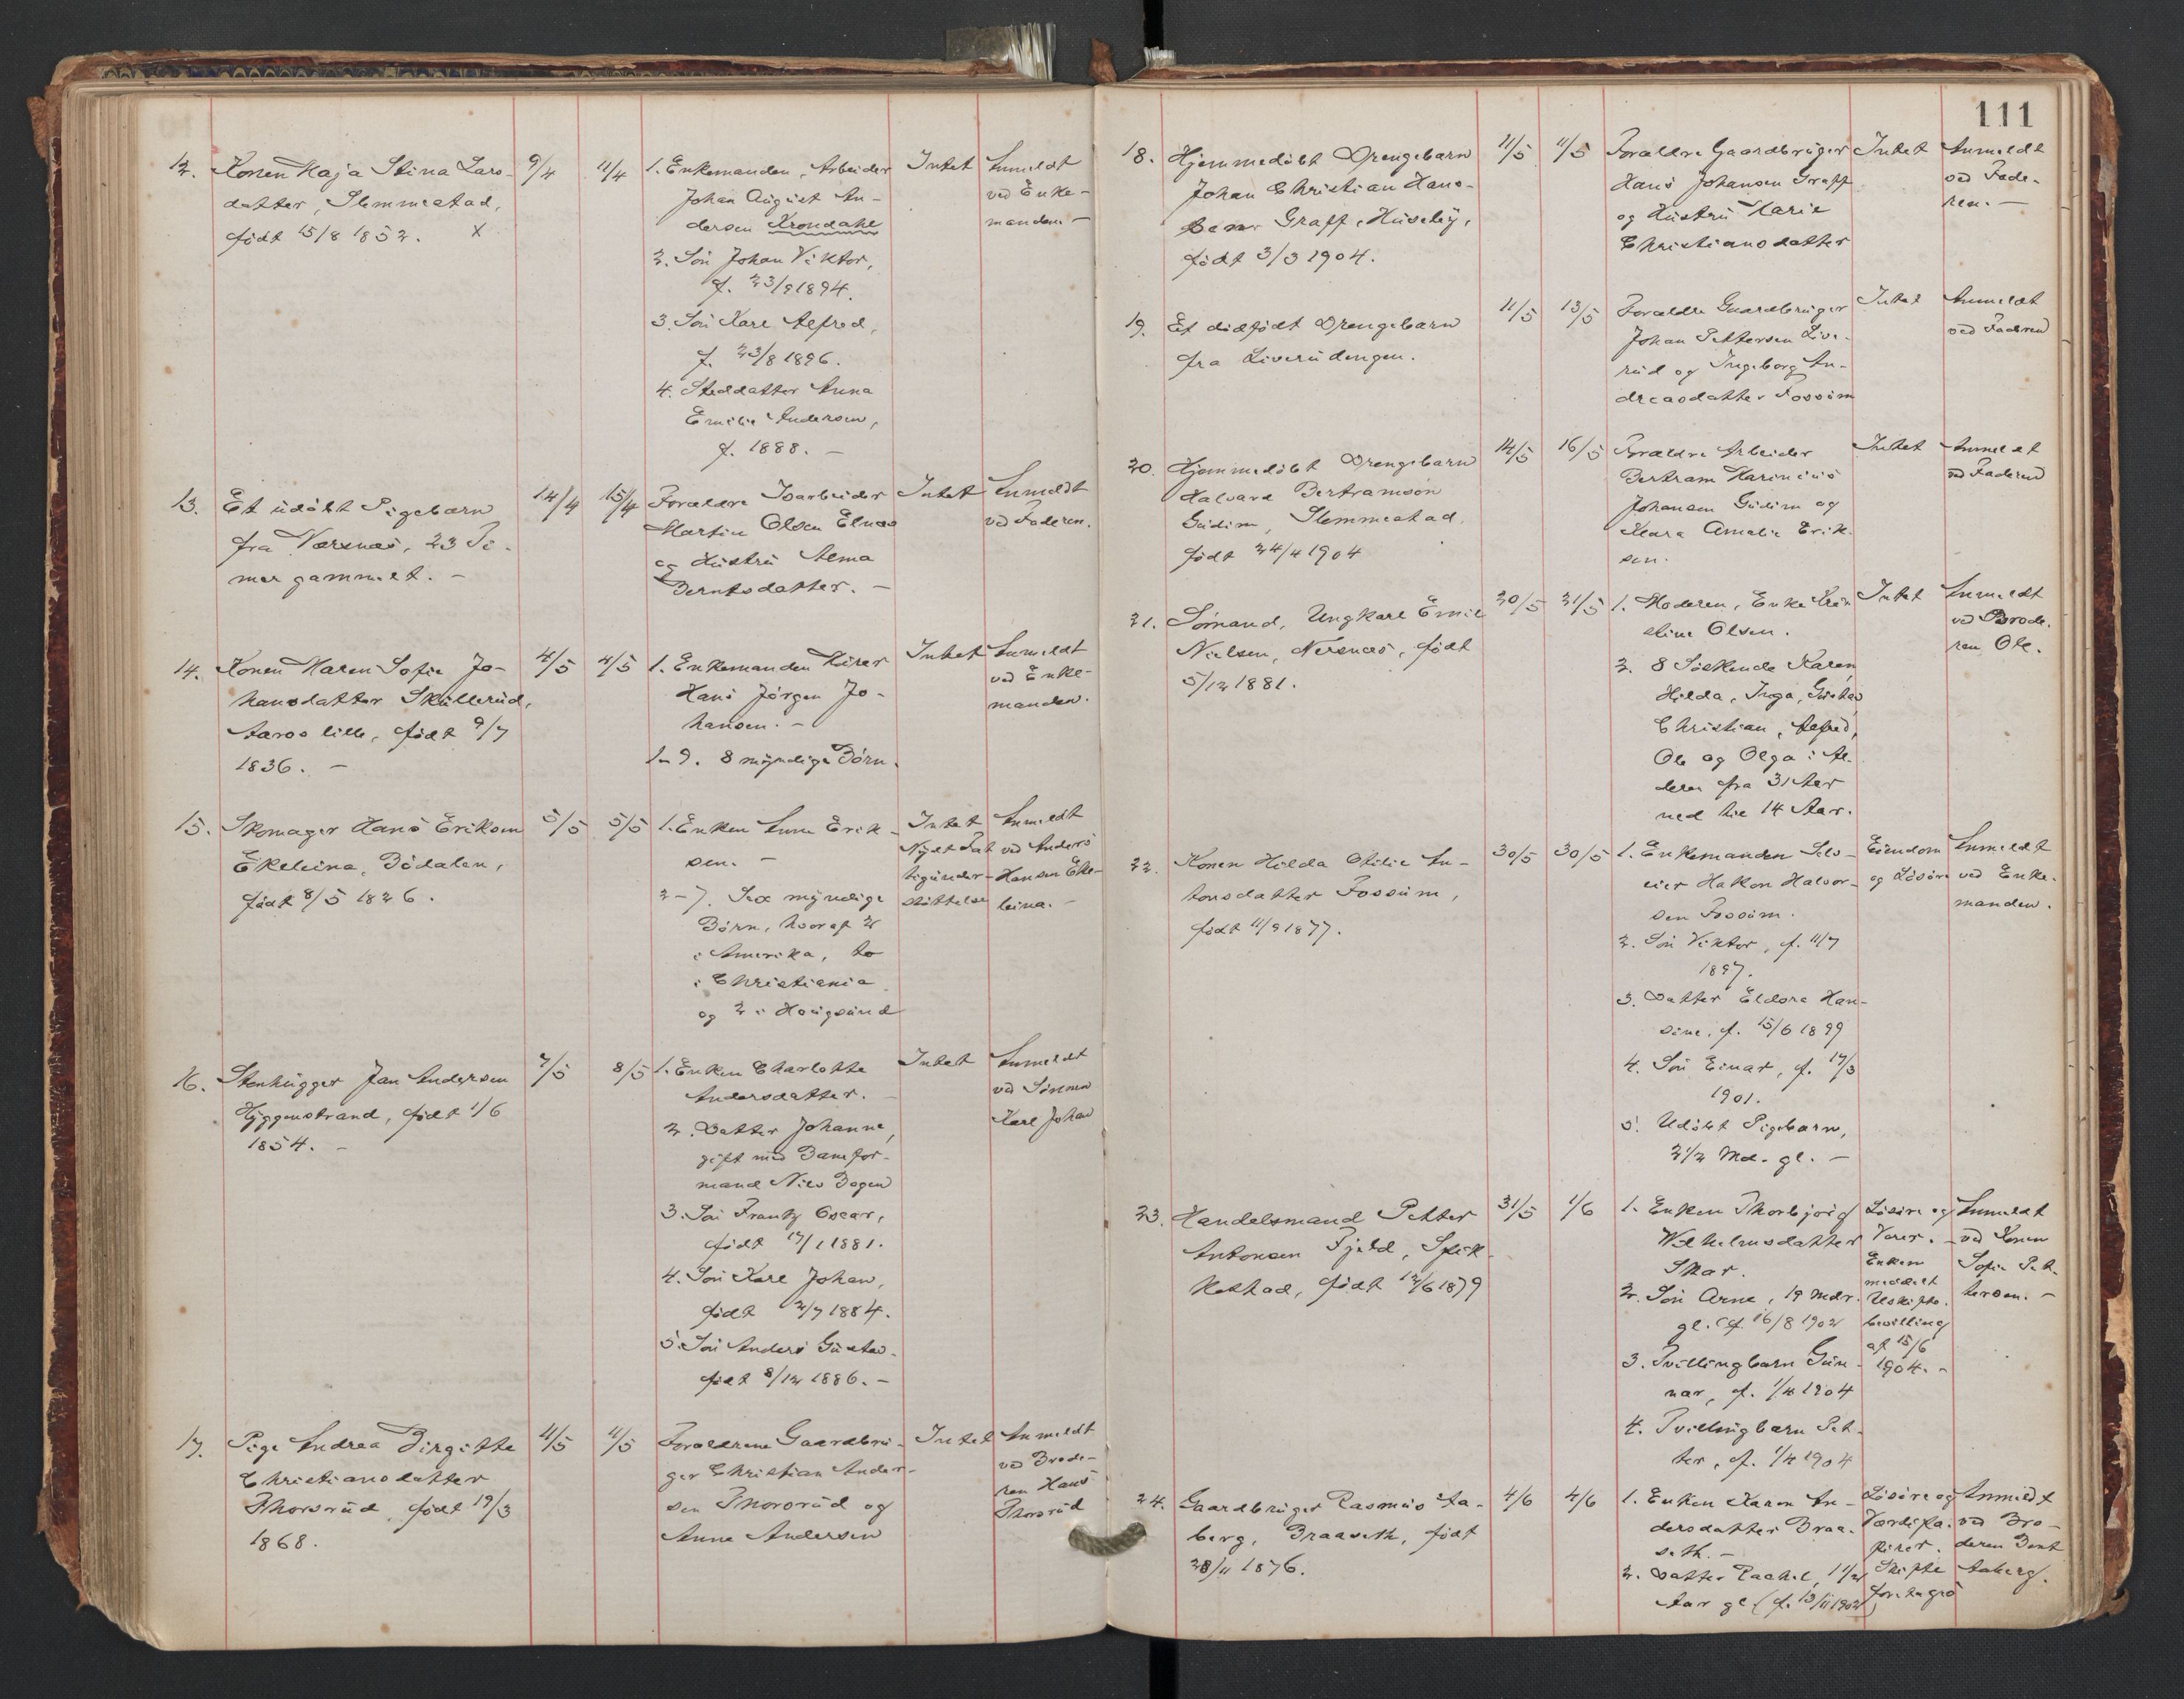 111
12. Konen Maja Stina Lars-
datter, Slemmestad,
født 15/8 1852. X
9/4
11/4
1. Enkemanden, Arbeider
Johan August An-
dersen Krondahl
2. Søn Johan Viktor,
f. 23/9 1894.
3. Søn Karl Alfred,
f. 23/8 1896.
4. Steddatter Anna
Emilie Andersen,
f. 1888. –
Intet
Anmeldt
ved Enke-
manden. –
13. Et udøbt Pigebarn
fra Nærsnæs, 23 Ti-
mer gammelt. –
14/4
15/4
Forældre Isarbeider
Martin Olsen Elnæs
og Hustru Alma
Berntsdatter. –
Intet
Anmeldt
ved Faderen.
14. Konen Maren Sofie Jo-
hansdatter Skullerud,
Aaros lille, født 9/7
1836. –
4/5
4/5
1. Enkemanden
Hans Jørgen Jo-
hansen. –
2-9. 8 myndige Børn.
Intet
Anmeldt
ved Enke-
manden.
15. Skomager Hans Eriksen
Ekeleina, Bødalen,
født 8/5 1826.
5/5
5/5
1. Enken Anne Erik-
sen. –
2-7. Sex myndige
Børn, hvoraf 2
i Amerika, to
i Christiania
og 2 i Hougsund
Intet
Nydt Fat-
tigunder-
støttelse
Anmeldt
ved Anders
Hansen Eke-
leina. –
16. Stenhugger Jan Andersen
Hyggenstrand, født 1/6
1854. –
7/5
8/5
1. Enken Charlotte
Andersdatter. –
2. Datter Johanne,
gift med Baneför-
mand Nils Bogen
3. Søn Frantz Oscar,
født 17/1 1881.
4. Søn Karl Johan,
født 2/7 1884.
5. Søn Anders Gustav.
født 8/12 1886. –
Intet
Anmeldt
ved Sønnen
Karl Johan
17. Pige Andrea Birgitte
Christiansdatter
Thorsrud, født 19/3
1868.
11/5
11/5
Forældrene Gaardbru-
ger Christian Ander-
sen Thorsrud og
Anne Andersen
Intet
Anmeldt
ved Brode-
ren Hans
Thorsrud
18. Hjemmedøbt Drengebarn
Johan Christian Hans-
sen Graff, Huseby,
født 3/3 1904.
11/5
11/5
Forældre Gaardbruger
Hans Johansen Graff
og Hustru Marie
Christiansdatter
Intet
Anmeldt
ved Fade-
ren. –
19. Et dødfødt Drengebarn
fra Liverudengen.
11/5
13/5
Forældre Gaardbruger
Johan Pettersen Live-
rud og Ingeborg An-
dreasdatter Fossum
Intet
Anmeldt
ved Faderen
20. Hjemmedøbt Drengebarn
Halvard Bertramsøn
Gudim, Slemmestad,
født 24/4 1904
14/5
16/5
Forældre Arbeider
Bertram Marinius
Johansen Gudim og
Klara Amalie Erik-
sen.
Intet
Anmeldt
ved Faderen
21. Sømand, Ungkarl Emil
Nielsen, Nersnæs, født
5/12 1881.
20/5
21/5
1. Moderen, Enke Kri-
stine Olsen.
2. 8 Søskende Karen,
Hilda, Inga, Gustav,
Christian, Alfred,
Ole og Olga i Al-
deren fra 31 Aar
ned til 14 Aar.
Intet
Anmeldt
ved Brode-
ren Ole.
22. Konen Hilda Otilie An-
tonsdatter Fossum,
født 11/9 1877.
30/5
30/5
1. Enkemanden Selv-
eier Hakon Halvor-
sen Fossum.
2. Søn Viktor, f. 11/7
1897.
3. Datter Eldora Han-
sine, f. 15/6 1899
4. Søn Einar, f. 17/3
1901.
5. Udøbt Pigebarn,
2 1/2 Md. gl. –
Eiendom
og Løsøre
Anmeldt
ved Enke-
manden.
23. Handelsmand Petter
Antonsen Fjeld, Spik-
kestad, født 12/6 1879
31/5
1/6
1. Enken Thorbjørg
Wilhelmsdatter
Skar.
2. Søn Arne, 19 Mdr.
gl. (f. 16/8 1902
3. Tvillingbarn Gun-
nar, f. 1/4 1904
4. Tvillingbarn Pet-
ter, f. 1/4 1904
Løsøre og
Varer. –
Enken
meddelt
Uskifte-
bevilling
af 15/6
1904. –
Anmeldt
ved Konen
Sofie Pet-
tersen. –
24. Gaardbruger Rasmus Aa-
berg, Braaseth, født
28/11 1876.
4/6
4/6
1. Enken Karen An-
dersdatter Braa-
seth. –
2. Datter Rachel, 1 1/2
Aar gl. (f. 13/11 1902)
Løsøre og
Værdipa-
pirer.
Skifte
foretages
Anmeldt
ved Bro-
deren Bent
Aaberg.